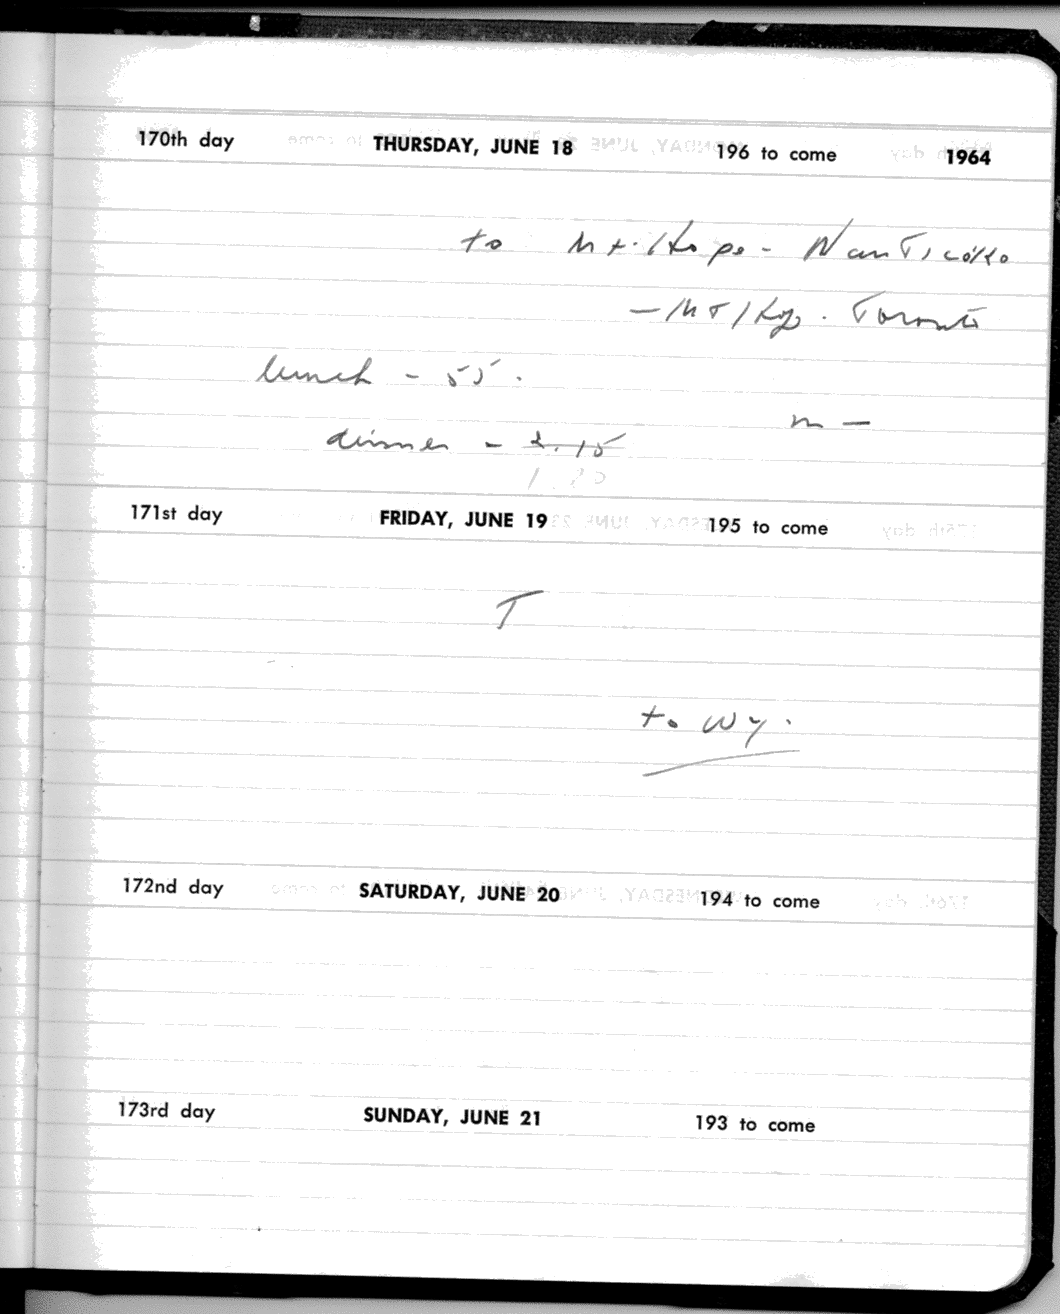 170th day THURSDAY, JUNE 18 196 to come 1964
to Mt. Hope - Nanticoke
- Mt Hop. Toronto
lunch - 55.
m -
dinner - 2.15
171st day FRIDAY, JUNE 19 195 to come
T
to Wy.
172nd day SATURDAY, JUNE 20 194 to come
173rd day SUNDAY, JUNE 21 193 to come